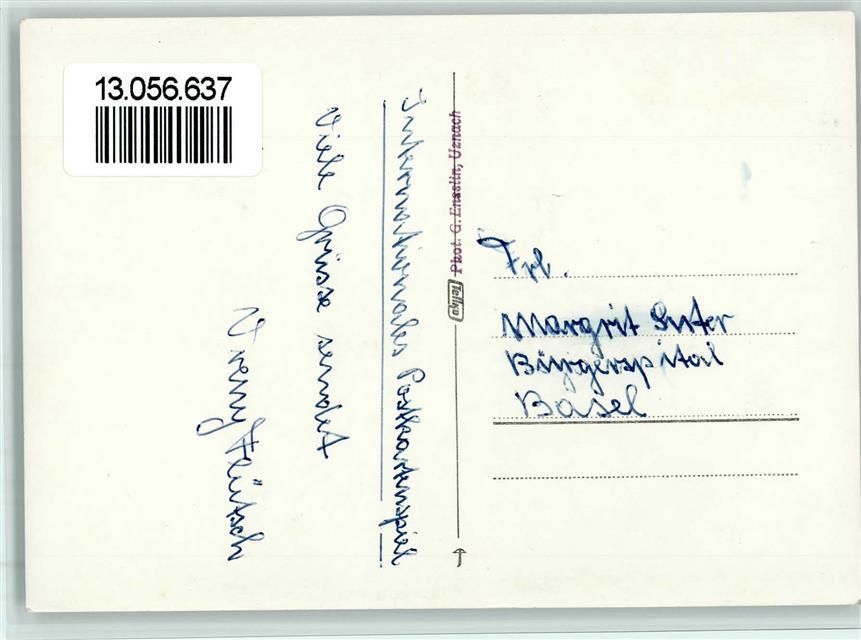 13.056.637
Internationales Postkartenspiel
Viele Grüsse sendet
Vreny Flütsch
Phot. G. Ensslin, Uznach
Tellko
Frl.
Margrit Suter
Bürgerspital
Basel